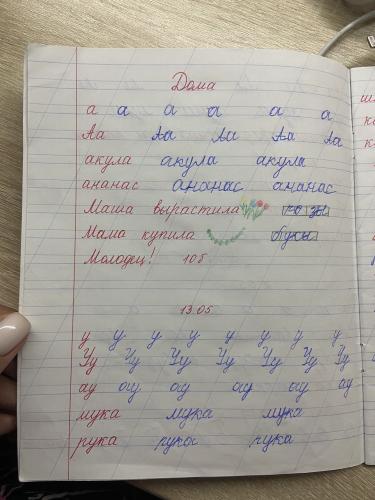 Дома
а а а а а а
Аа Аа Аа Аа Аа
акула акула акула
ананас ананас ананас
Маша вырастила розы
Мама купила бусы
Молодец! 10б
13.05
у у у у у у у у
Уу Уу Уу Уу Уу Уу Уу
ау ау ау ау ау ау
мука мука мука
рука рука рука